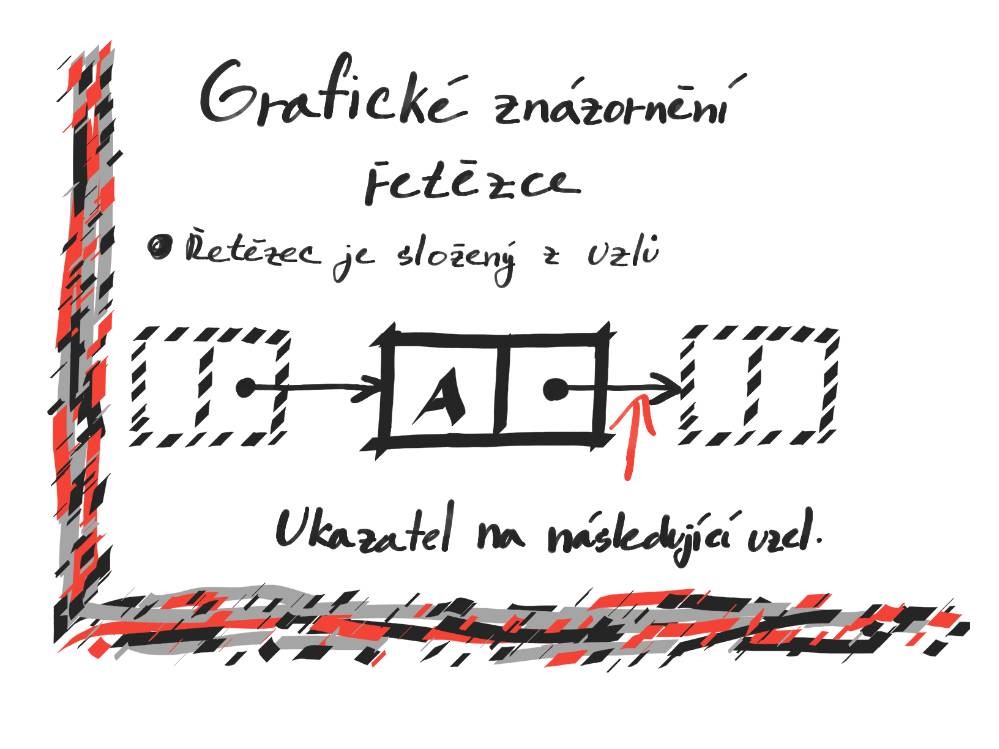 Grafické znázornění
řetězce
Řetězec je složený z uzlů
A
Ukazatel na následující uzel.